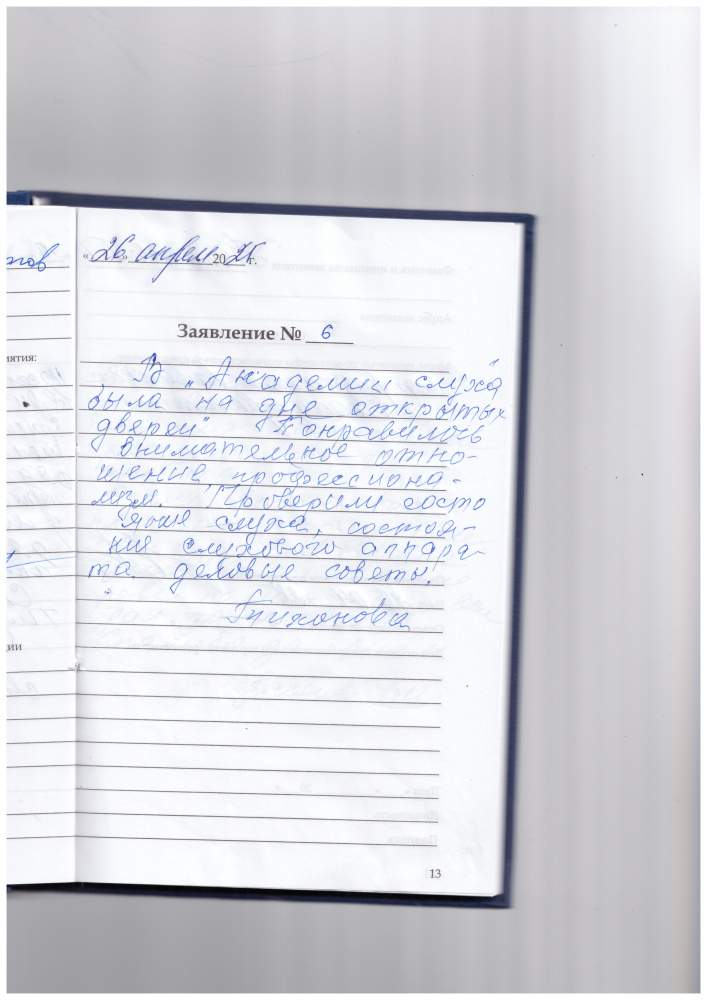 «26» апреля 2025 г.
Заявление № 6
В „Академии слуха"
была на дне открытых
дверей" Понравилось
внимательное отно-
шение профессиона-
лизм. Проверили состо
яние слуха, состоя-
ния слухового аппара-
та. деловые советы.
Тихонова
ятия:
ии
13